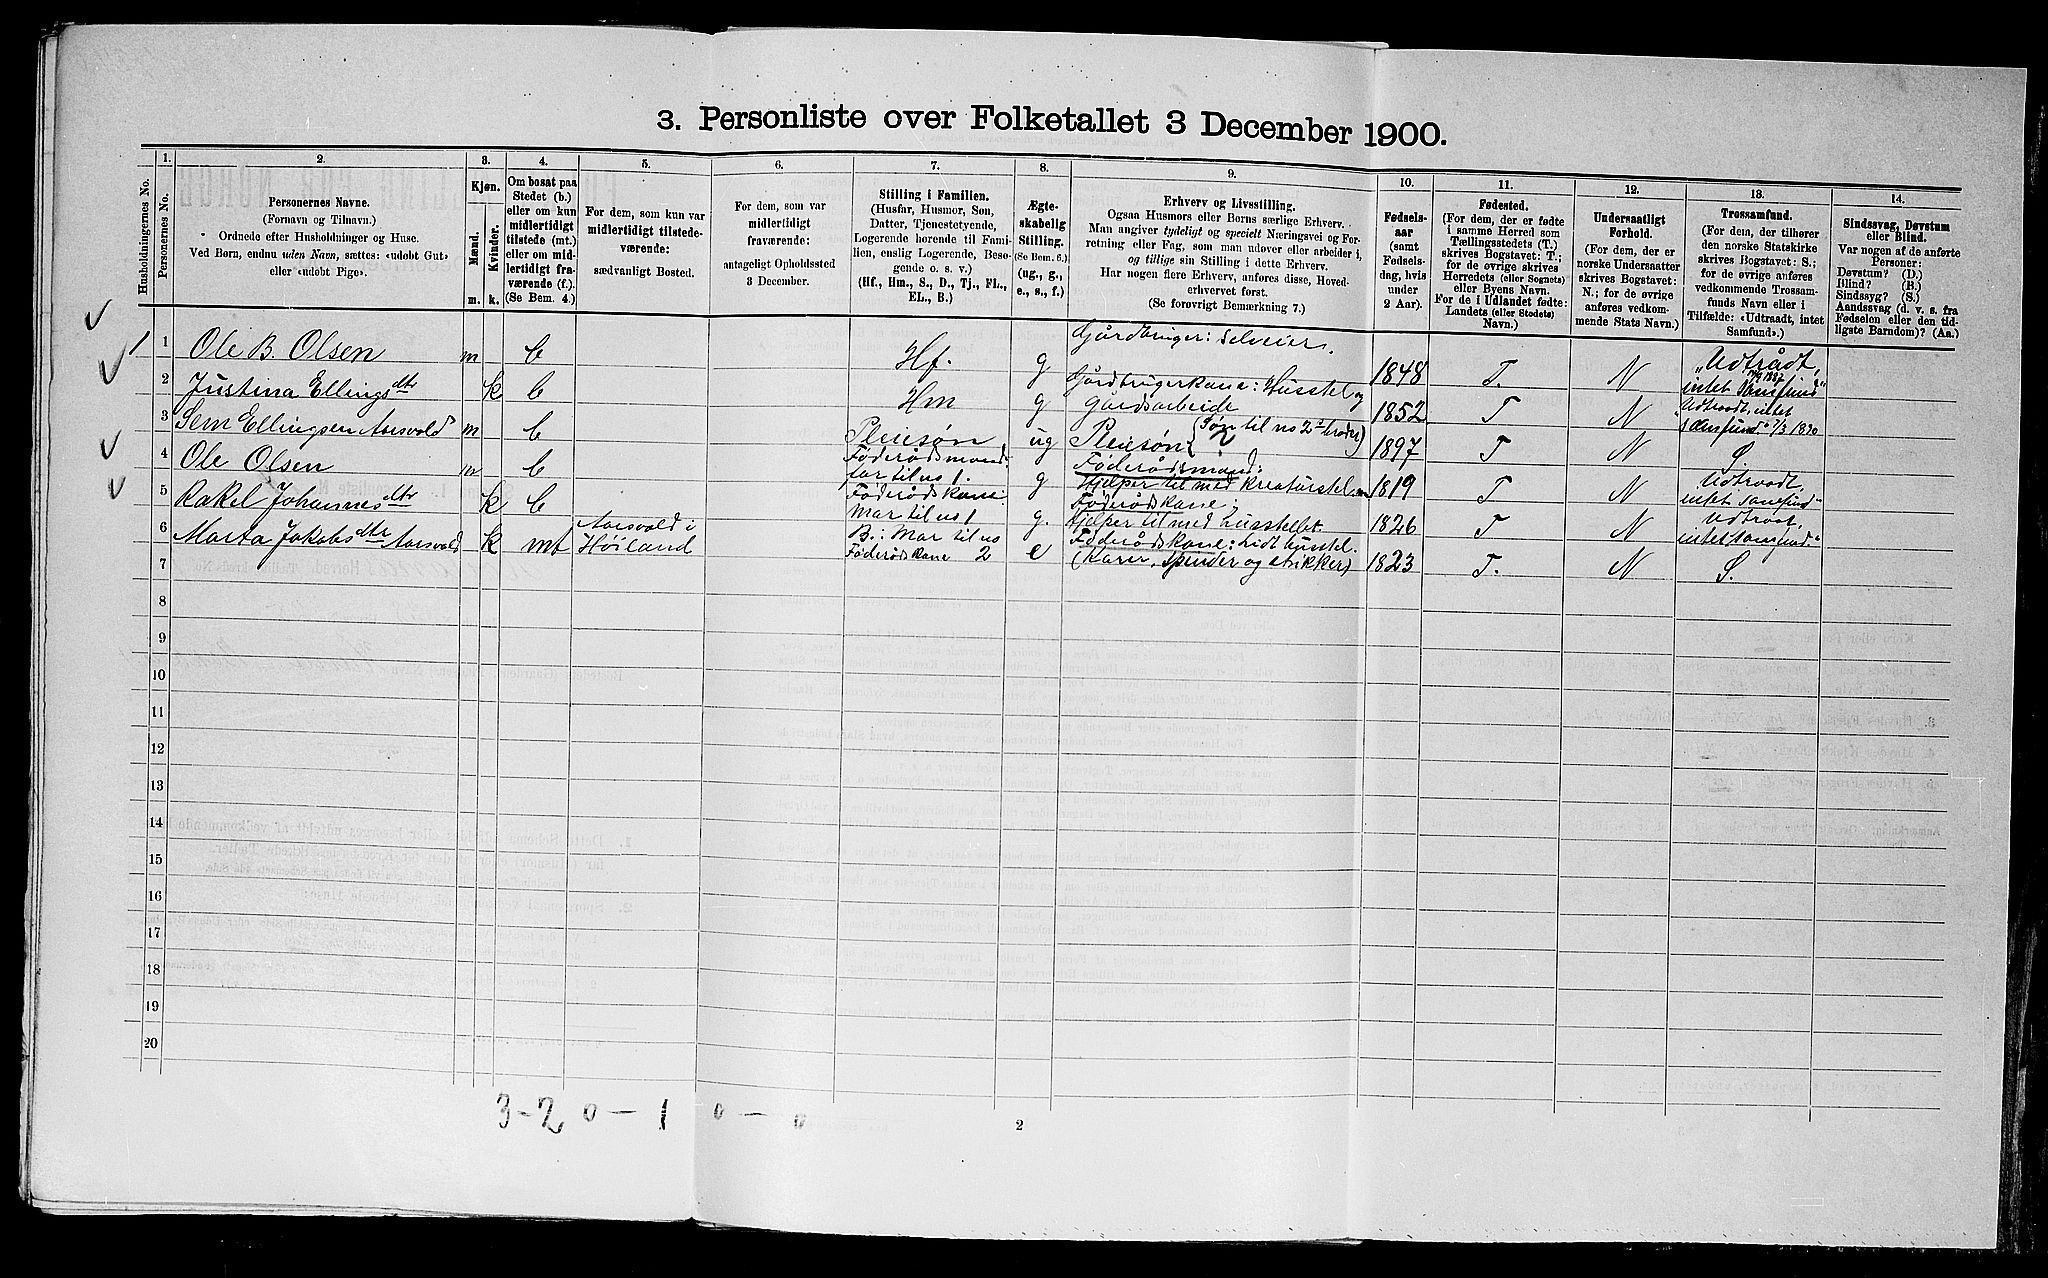 3. Personliste over Folketallet 3 December 1900.
Husholdningernes No.
1.
Personernes No.
2.
Personernes Navne.
(Fornavn og Tilnavn.)
Ordnede efter Husholdninger og Huse.
Ved Børn, endnu uden Navn, sættes: «udobt Gut»
eller «udobt Pige».
3.
Kjøn.
Mænd.
Kvinder.
m. k.
4.
Om bosat paa
Stedet (b.)
eller om kun
midlertidigt
tilstede (mt.)
eller om mid-
lertidigt fra-
værende (f.).
(Se Bem. 4.)
5.
For dem, som kun var
midlertidigt tilstede-
værende:
sædvanligt Bosted.
6.
For dem, som var
midlertidigt
fraværende:
antageligt Opholdssted
3 December.
7.
Stilling i Familien.
(Husfar, Husmor, Søn,
Datter, Tjenestetyende,
Logerende hørende til Fami-
lien, enslig Logerende, Besø-
gende o. s. v.)
(Hf., Hm., S., D., Tj., FL.,
EL., B.)
8.
Ægte-
skabelig
Stilling.
(Se Bem. 6.)
(ug., g.,
e., s., f.)
9.
Erhverv og Livsstilling.
Ogsaa Husmors eller Børns særlige Erhverv.
Man angiver tydeligt og specielt Næringsvei og For-
retning eller Fag, som man udøver eller arbeider i,
og tillige sin Stilling i dette Erhverv.
Har nogen flere Erhverv, anføres disse, Hoved-
erhvervet først.
(Se forøvrigt Bemærkning 7.)
10.
Fødsels-
aar
(samt
Fødsels-
dag, hvis
under
2 Aar).
11.
Fødested.
(For dem, der er fødte
i samme Herred som
Tællingsstedets (T.)
skrives Bogstavet: T.;
for de øvrige skrives
Herredets (eller Sognets)
eller Byens Navn.
For de i Udlandet fødte:
Landets (eller Stedets)
Navn.)
12.
Undersaatligt
Forhold.
(For dem, der er
norske Undersaatter
skrives Bogstavet:
N.; for de øvrige
anføres vedkom-
mende Stats Navn.)
13.
Trossamfund.
(For dem, der tilhører
den norske Statskirke
skrives Bogstavet: S.;
for de øvrige anføres
vedkommende Trossam-
funds Navn eller i
Tilfælde: «Udtraadt, intet
Samfund».)
14.
Sindssvag, Døvstum
eller Blind.
Var nogen af de anførte
Personer:
Døvstum? (D.)
Blind? (B.)
Sindssyg? (S.)
Aandssvag (d. v. s. fra
Fødselen eller den tid-
ligste Barndom)? (Aa.)
1 1 Ole B. Olsen m b Hf. g Gårdbruger: Selveier. 1848 T. N „Udtrådt, intet Samfund"
2 Justina Ellingsdtr k b Hm g Gårdbrugerkone: Husstel og gårdsarbeide 1852 T N „Udtraadt, intet samfund." 7/3 1890
3 Sem Ellingsen Aarsvold m b Pleiesøn ug Pleiesøn (Søn til no 2's broder) 1897 T N S
4 Ole Olsen m b Föderådsmand: far til no 1. g Föderådsmand: Hjelper til med kreaturstel 1819 T N Udtraadt, intet samfund
5 Rakel Johannesdtr k b Föderådskone: Mor til no 1 g. Föderådskone; Hjelper til med husstellet 1826 T N Udtraat, intet samfund."
6 Marta Jakobsdtr Aarsvold k mt Aarsvold i Høiland B: Mor til no 2 Föderådskone e Föderådskone: Lidt husstel. (Karer, spinder og strikker) 1823 T. N S.
7
8
9
10
11
12
13
14
15
16
17
18
19
20
3-2 0 - 1 0 - 0
2